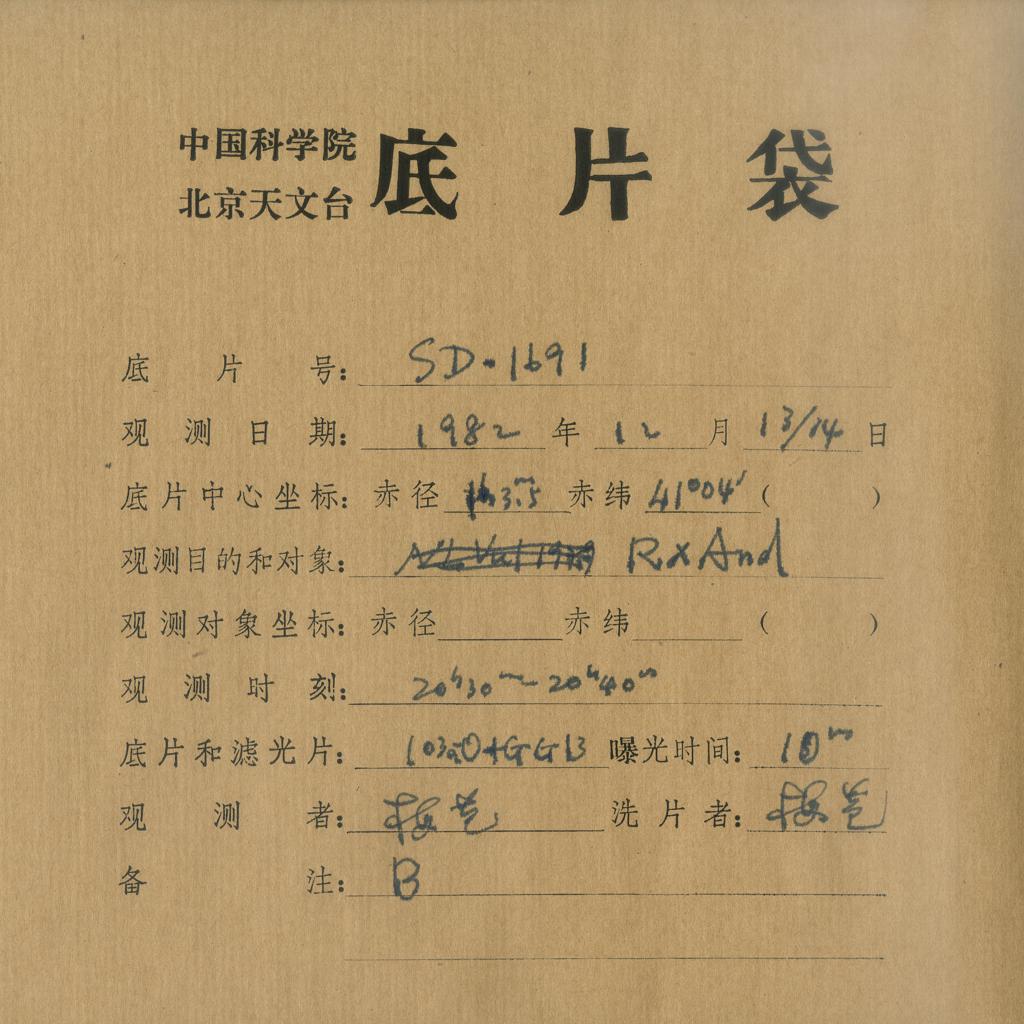 中国科学院
北京天文台
底片袋
底片号: SD-1691
观测日期: 1982年12月13/14日
底片中心坐标: 赤径 1h3.5m 赤纬 41°04′ ( )
观测目的和对象: Rx And
观测对象坐标: 赤径 赤纬 ( )
观测时刻: 20h30m-20h40m
底片和滤光片: 103aO+GG13 曝光时间: 10m
观测者: 洗片者:
备注: B